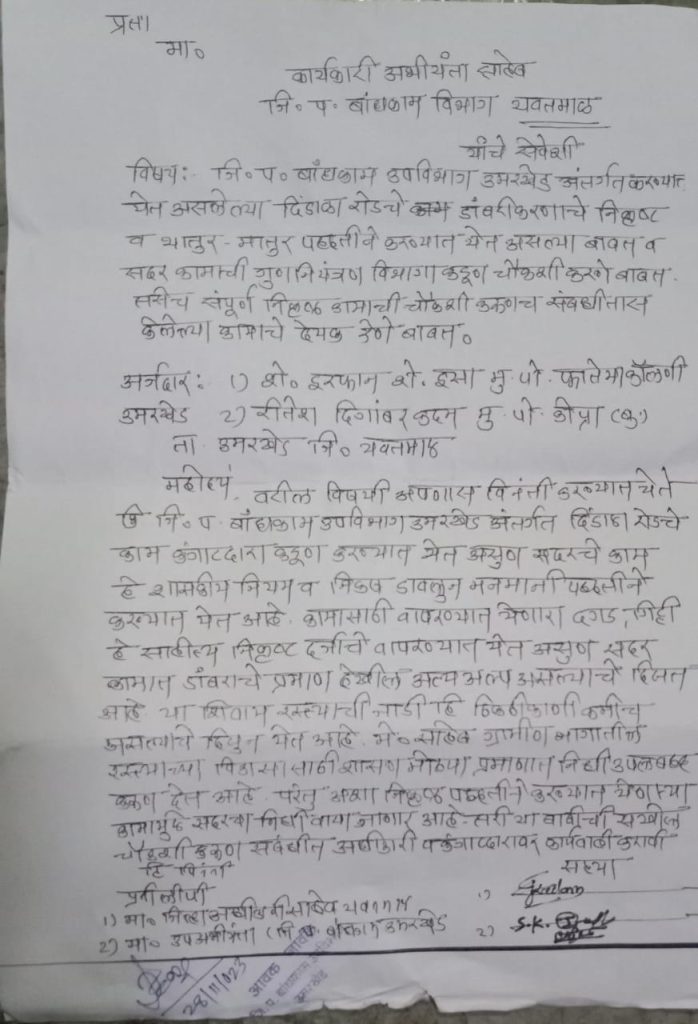 प्रती
मा०
कार्यकारी अभीयंता साहेब
जि० प० बांधकाम विभाग यवतमाळ
यांचे सेवेशी
विषय:- जि० प० बांधकाम उपविभाग उमरखेड अंतर्गत करण्यात
येत असलेल्या दिंडाळा रोडचे काम डांबरीकरणाचे निकृष्ट
व थातुर-मातुर पद्धतीने करण्यात येत असल्या बाबत व
सदर कामाची गुण नियंत्रण विभागा कडूण चौकशी करणे बाबत.
तसेच संपूर्ण निकृष्ठ कामाची चौकशी करूणच संबधीतास
केलेल्या कामाचे देयक देणे बाबत०
अर्जदार: १) शे० इरफान शे. इसा मु. पो. फातेमा कॉलनी
उमरखेड २) रीतेश दिगांबर कदम मु. पो. कोप्रा (बु.)
ता. उमरखेड जि० यवतमाळ
महोदय, वरील विषयी आपणास विनंती करण्यात येते
कि जि० प. बांधकाम उपविभाग उमरखेड अंतर्गत दिंडाळा रोडचे
काम कंत्राटदारा कडूण करण्यात येत असुण सदरचे काम
हे शासकीय नियम व निकष डावलुन मनमानी पद्धतीने
करण्यात येत आहे. कामासाठी वापरण्यात येणारा दगड, गिट्टी
हे साहीत्य निकृष्ट दर्जाचे वापरण्यात येत असुण सदर
कामात डांबराचे प्रमाण देखील अत्य अल्प असल्याचे दिसत
आहे. या शिवाय रस्त्याची जाडी हि ठिकठिकाणी कमीच
असल्याचे दिसुन येत आहे. मे० साहेब ग्रामीण भागातील
रस्त्याच्या विकासासाठी शासण मोठ्या प्रमाणात निधी उपलबद्ध
करूण देत आहे. परंतु अशा निकृष्ठ पद्धतीने करण्यात येणाऱ्या
कामामुळे सदरचा निधी वाया जाणार आहे. तरी या बाबीची सखोल
चौकशी करूण संबधीत अधीकारी व कंत्राटदारावर कार्यवाही करावी
हि विनंती
सह्या
प्रतीलीपी
१)
१) मा० जिल्हाअधीकारी साहेब यवतमाळ
२) मा० उपअभीयंता (जि प. बांधकाम उमरखेड
२) S.K.
आवक
28/11/023
उमरखेड